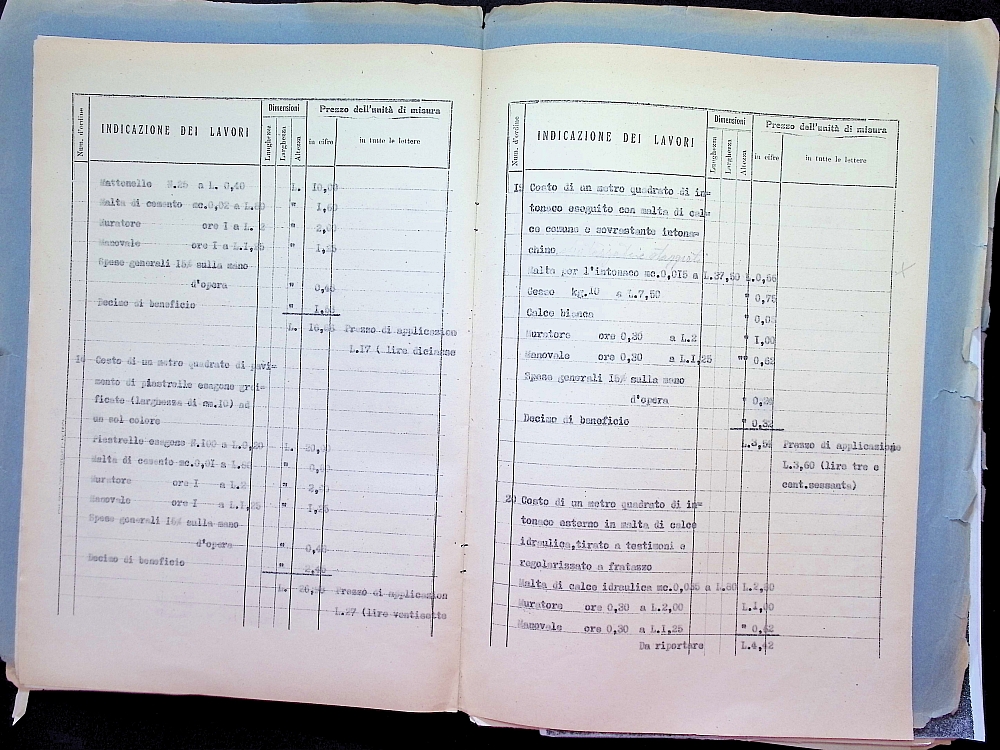 Num. d'ordine
INDICAZIONE DEI LAVORI
Dimensioni
Lunghezza
Larghezza
Altezza
Prezzo dell'unità di misura
in cifre
in tutte le lettere
Mattonelle N.25 a L. 0,40 L. 10,00
Malta di cemento mc.0,02 a L.80 " 1,60
Muratore ore I a L. 2 " 2,00
Manovale ore I a L.I,25 " 1,25
Spese generali 15% sulla mano
d'opera "
Decimo di beneficio "
L. Prezzo di applicazion
L.17 ( lire diciasse
Costo di un metro quadrato di pavi-
mento di piastrelle esagone gra-
ficate (larghezza di cm.10) ad
un sol colore
Piastrelle esagone N.100 a L.0,20 L. 20,00
Malta di cemento mc.0,01 a L.80 "
Muratore ore I a L.2 " 2,00
Manovale ore I a L.I,25 " 1,25
Spese generali 15% sulla mano
d'opera "
Decimo di beneficio "
L. Prezzo di applicazion
L.27 (lire ventisette
Num. d'ordine
INDICAZIONE DEI LAVORI
Dimensioni
Lunghezza
Larghezza
Altezza
Prezzo dell'unità di misura
in cifre
in tutte le lettere
19 Costo di un metro quadrato di in=
tonaco eseguito con malta di cal=
ce comune e sovrastante intona=
chino
Malta per l'intonaco mc.0,015 a L.37,50 L.0,56
Gesso kg.10 a L.7,50 " 0,75
Calce bianca " 0,05
Muratore ore 0,30 a L.2 " 1,00
Manovale ore 0,30 a L.I,25 "" 0,62
Spese generali 15% sulla mano
d'opera "
Decimo di beneficio " 0,32
Prezzo di applicazione
L.3,60 (lire tre e
cent.sessanta)
20 Costo di un metro quadrato di in=
tonaco esterno in malta di calce
idraulica,tirato a testimoni e
regolarizzato a fratazzo
Malta di calce idraulica mc.0,035 a L.80 L.2,80
Muratore ore 0,30 a L.2,00 L.1,00
Manovale ore 0,30 a L.I,25 " 0,62
Da riportare L.4,42